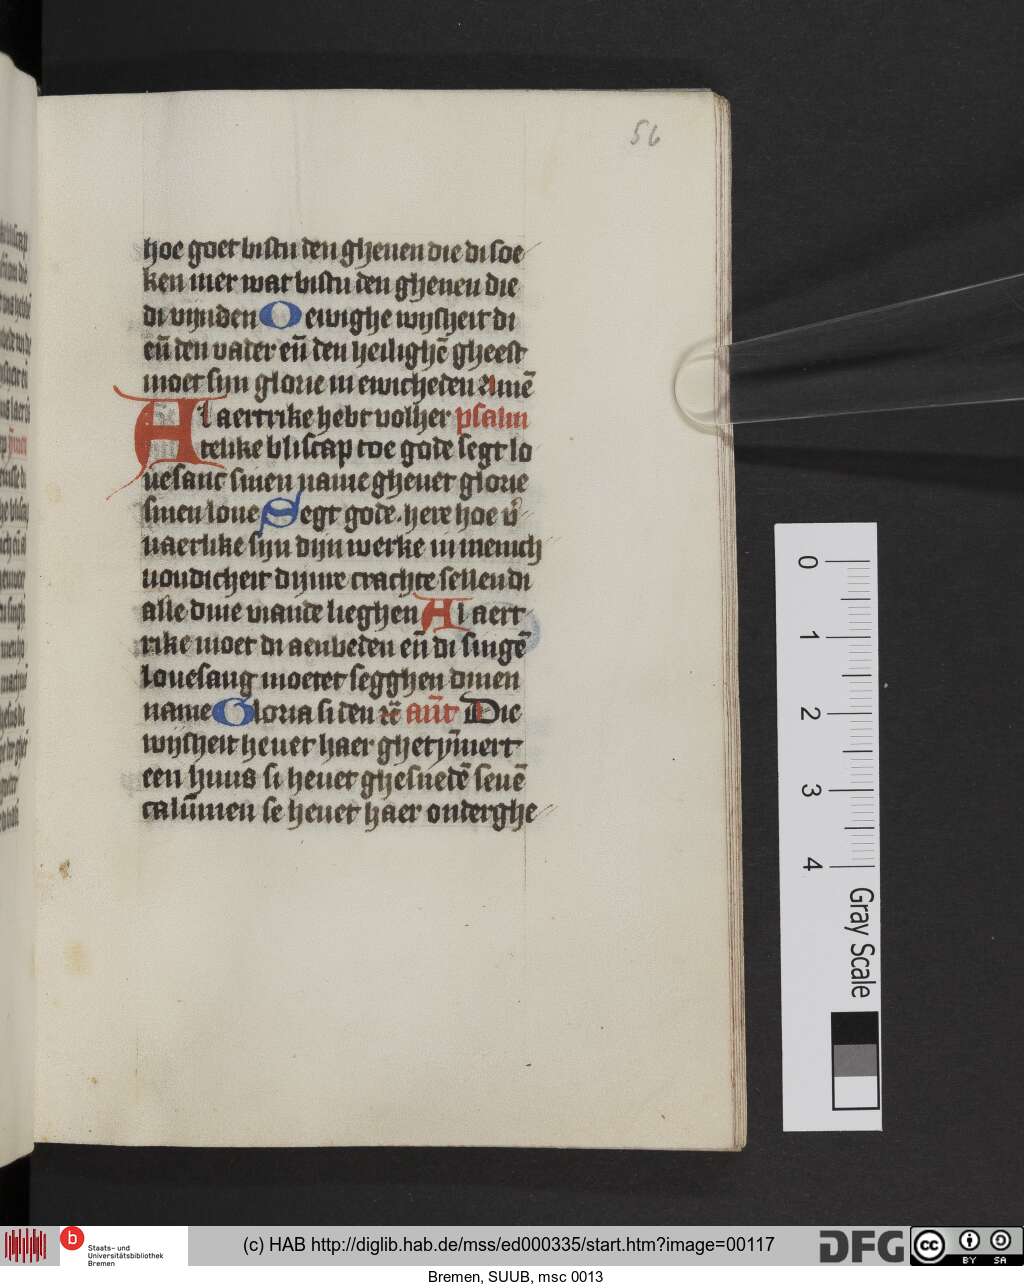 56
hoe goet bistu den gheuen die di soe
ken mer wat bistu den gheuen die
di vynden O ewighe wysheit di
eñ den vader eñ den heilighē gheest
moet syn glorie in ewicheden Amē
Al aertrike hebt volher psalm
telike bliscap toe gode segt lo
uesanc sinen name gheuet glorie
sinen loue Segt gode here hoe
uaerlike syn dyn werke in menich
uoudicheit dynre crachte sellen di
alle dine viande lieghen Al aert
rike moet di aenbeden eñ di singē
louesang moetet segghen dinen
name Gloria si den añt Die
wysheit heuet haer ghetȳmert
een huus si heuet ghesnedē seuē
calūmen se heuet haer onderghe
0
1
2
3
4
Gray Scale
b Staats- und
Universitätsbibliothek
Bremen
(c) HAB http://diglib.hab.de/mss/ed000335/start.htm?image=00117
DFG
cc BY SA
Bremen, SUUB, msc 0013